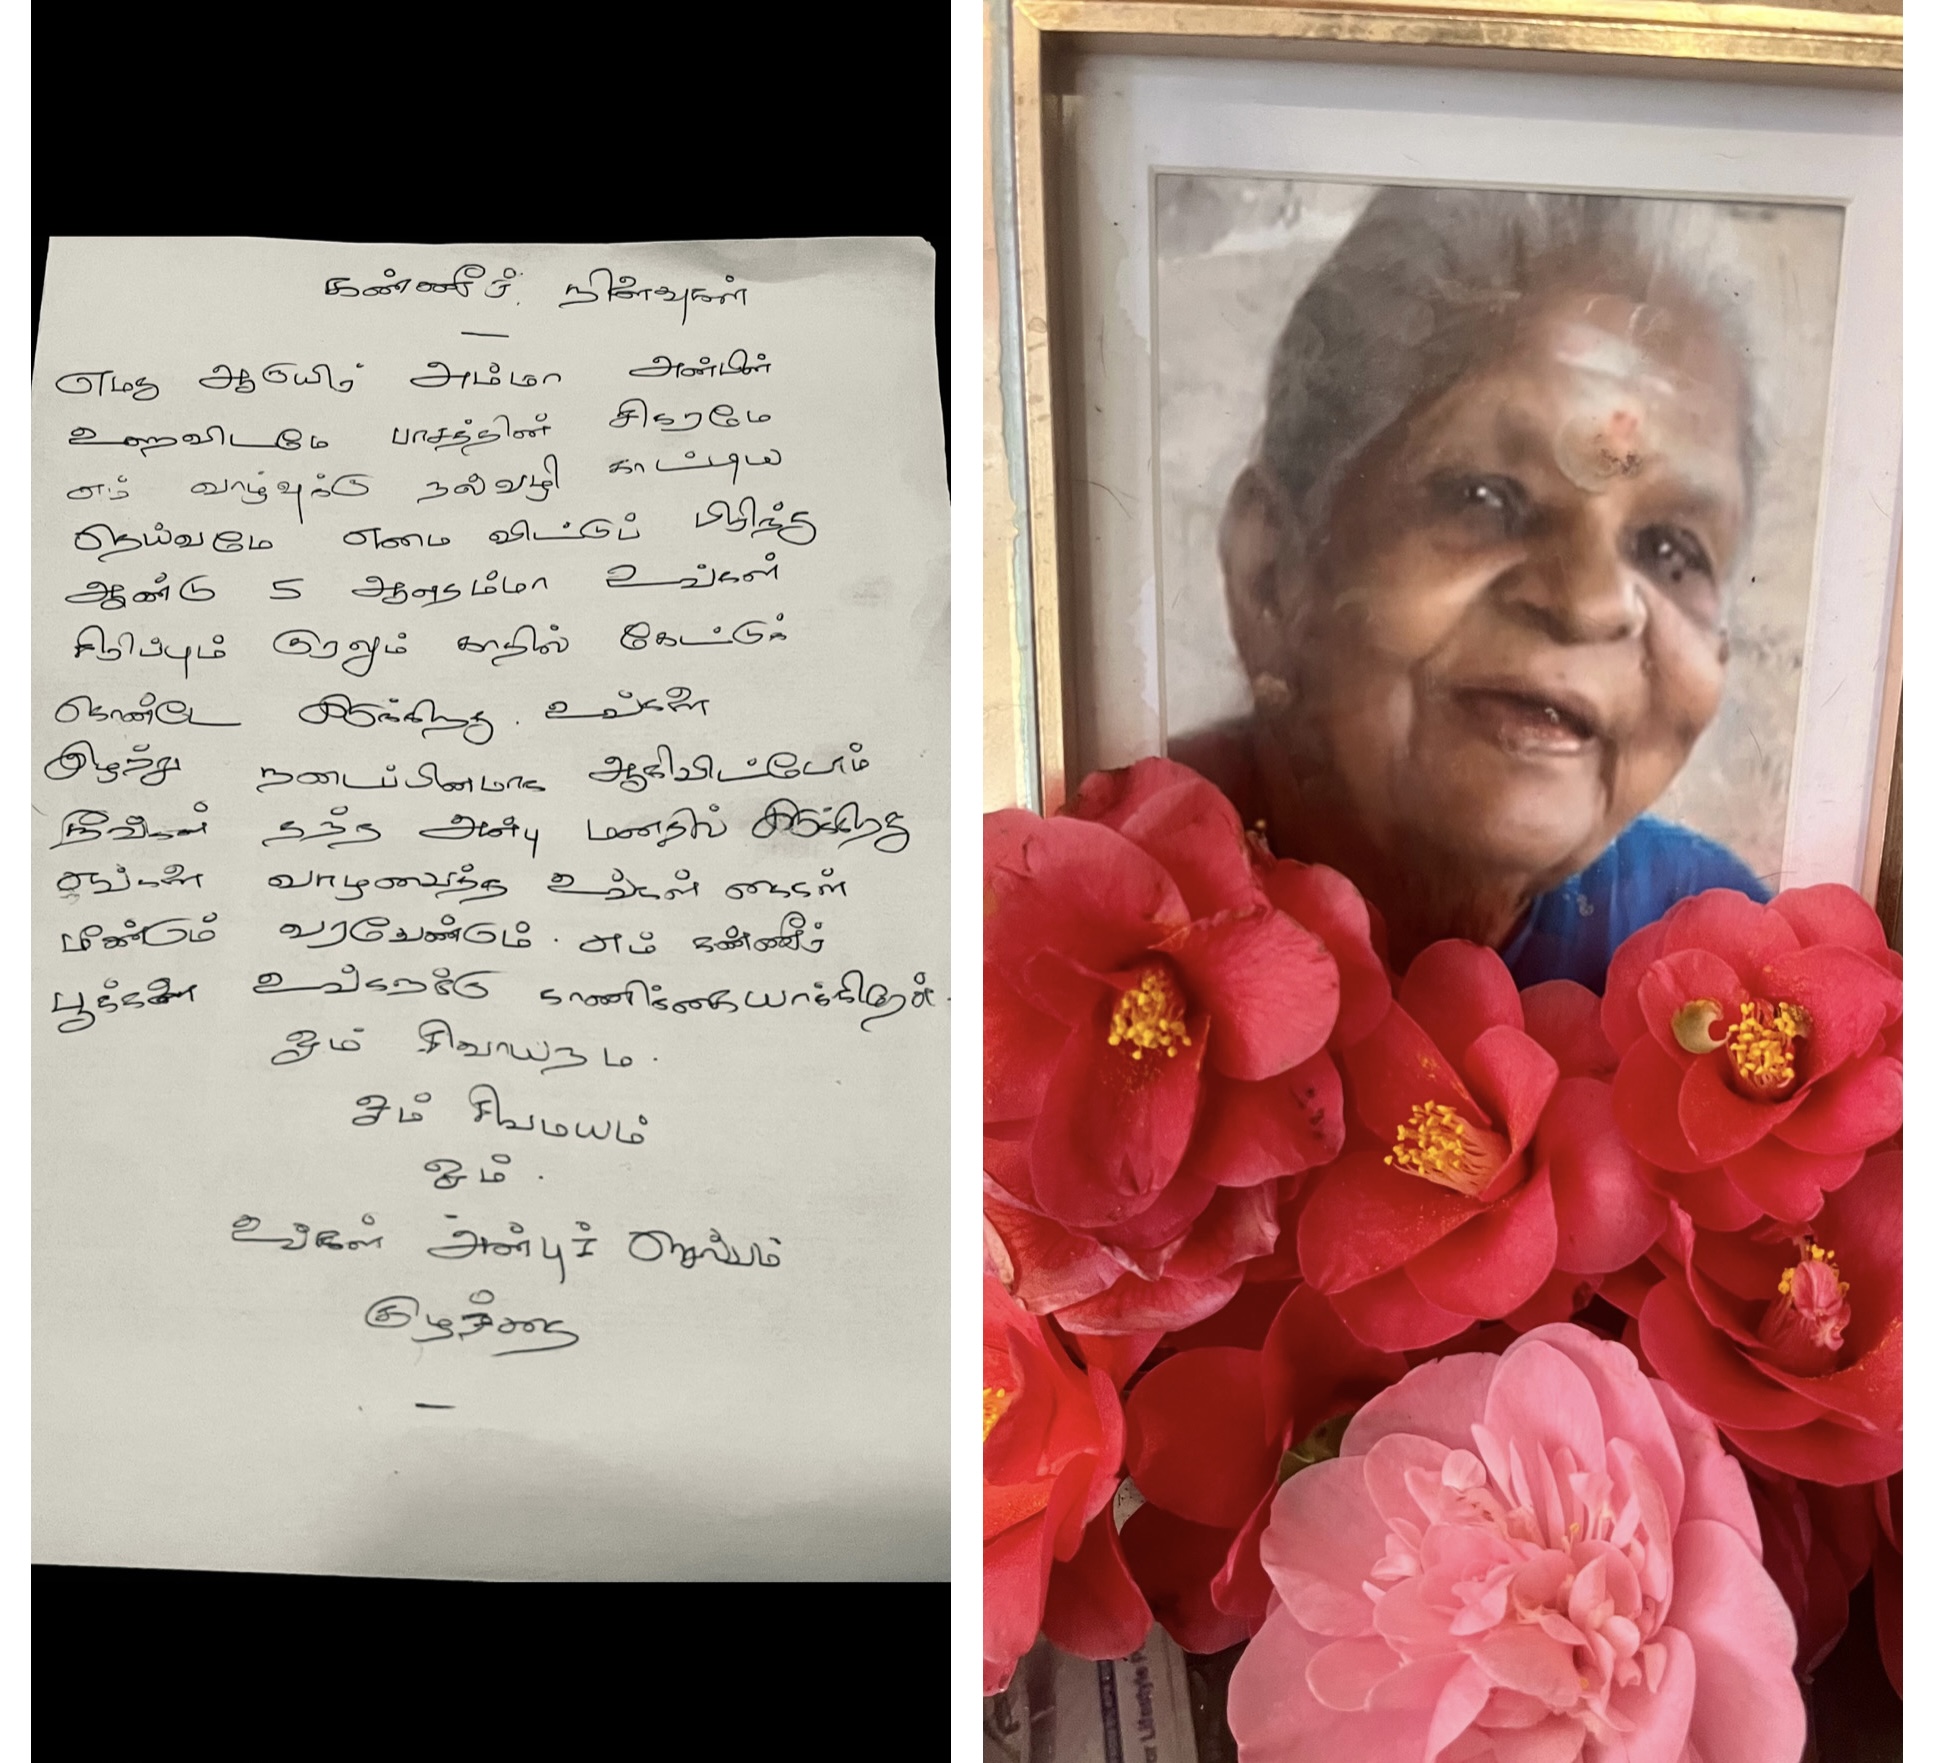 கண்ணீர் நினைவுகள்
எமது ஆருயிர் அம்மா அன்பின்
உறைவிடமே பாசத்தின் சிகரமே
எம் வாழ்வுக்கு நல்வழி காட்டிய
தெய்வமே எமை விட்டுப் பிரிந்து
ஆண்டு 5 ஆனதம்மா உங்கள்
சிரிப்பும் குரலும் காதில் கேட்டுக்
கொண்டே இருக்கிறது. உங்களை
இழந்து நடைப்பிணமாக ஆகிவிட்டோம்
நீங்கள் தந்த அன்பு மனதில் இருக்கிறது
எங்களை வாழவைத்த உங்கள் கைகள்
மீண்டும் வரவேண்டும். எம் கண்ணீர்
பூக்களை உங்களுக்கு காணிக்கையாக்கிறேன்.
ஓம் சிவாயநம.
ஓம் சிவமயம்
ஓம்.
உங்கள் அன்புச் செல்வம்
குழந்தை
r Lifestyle